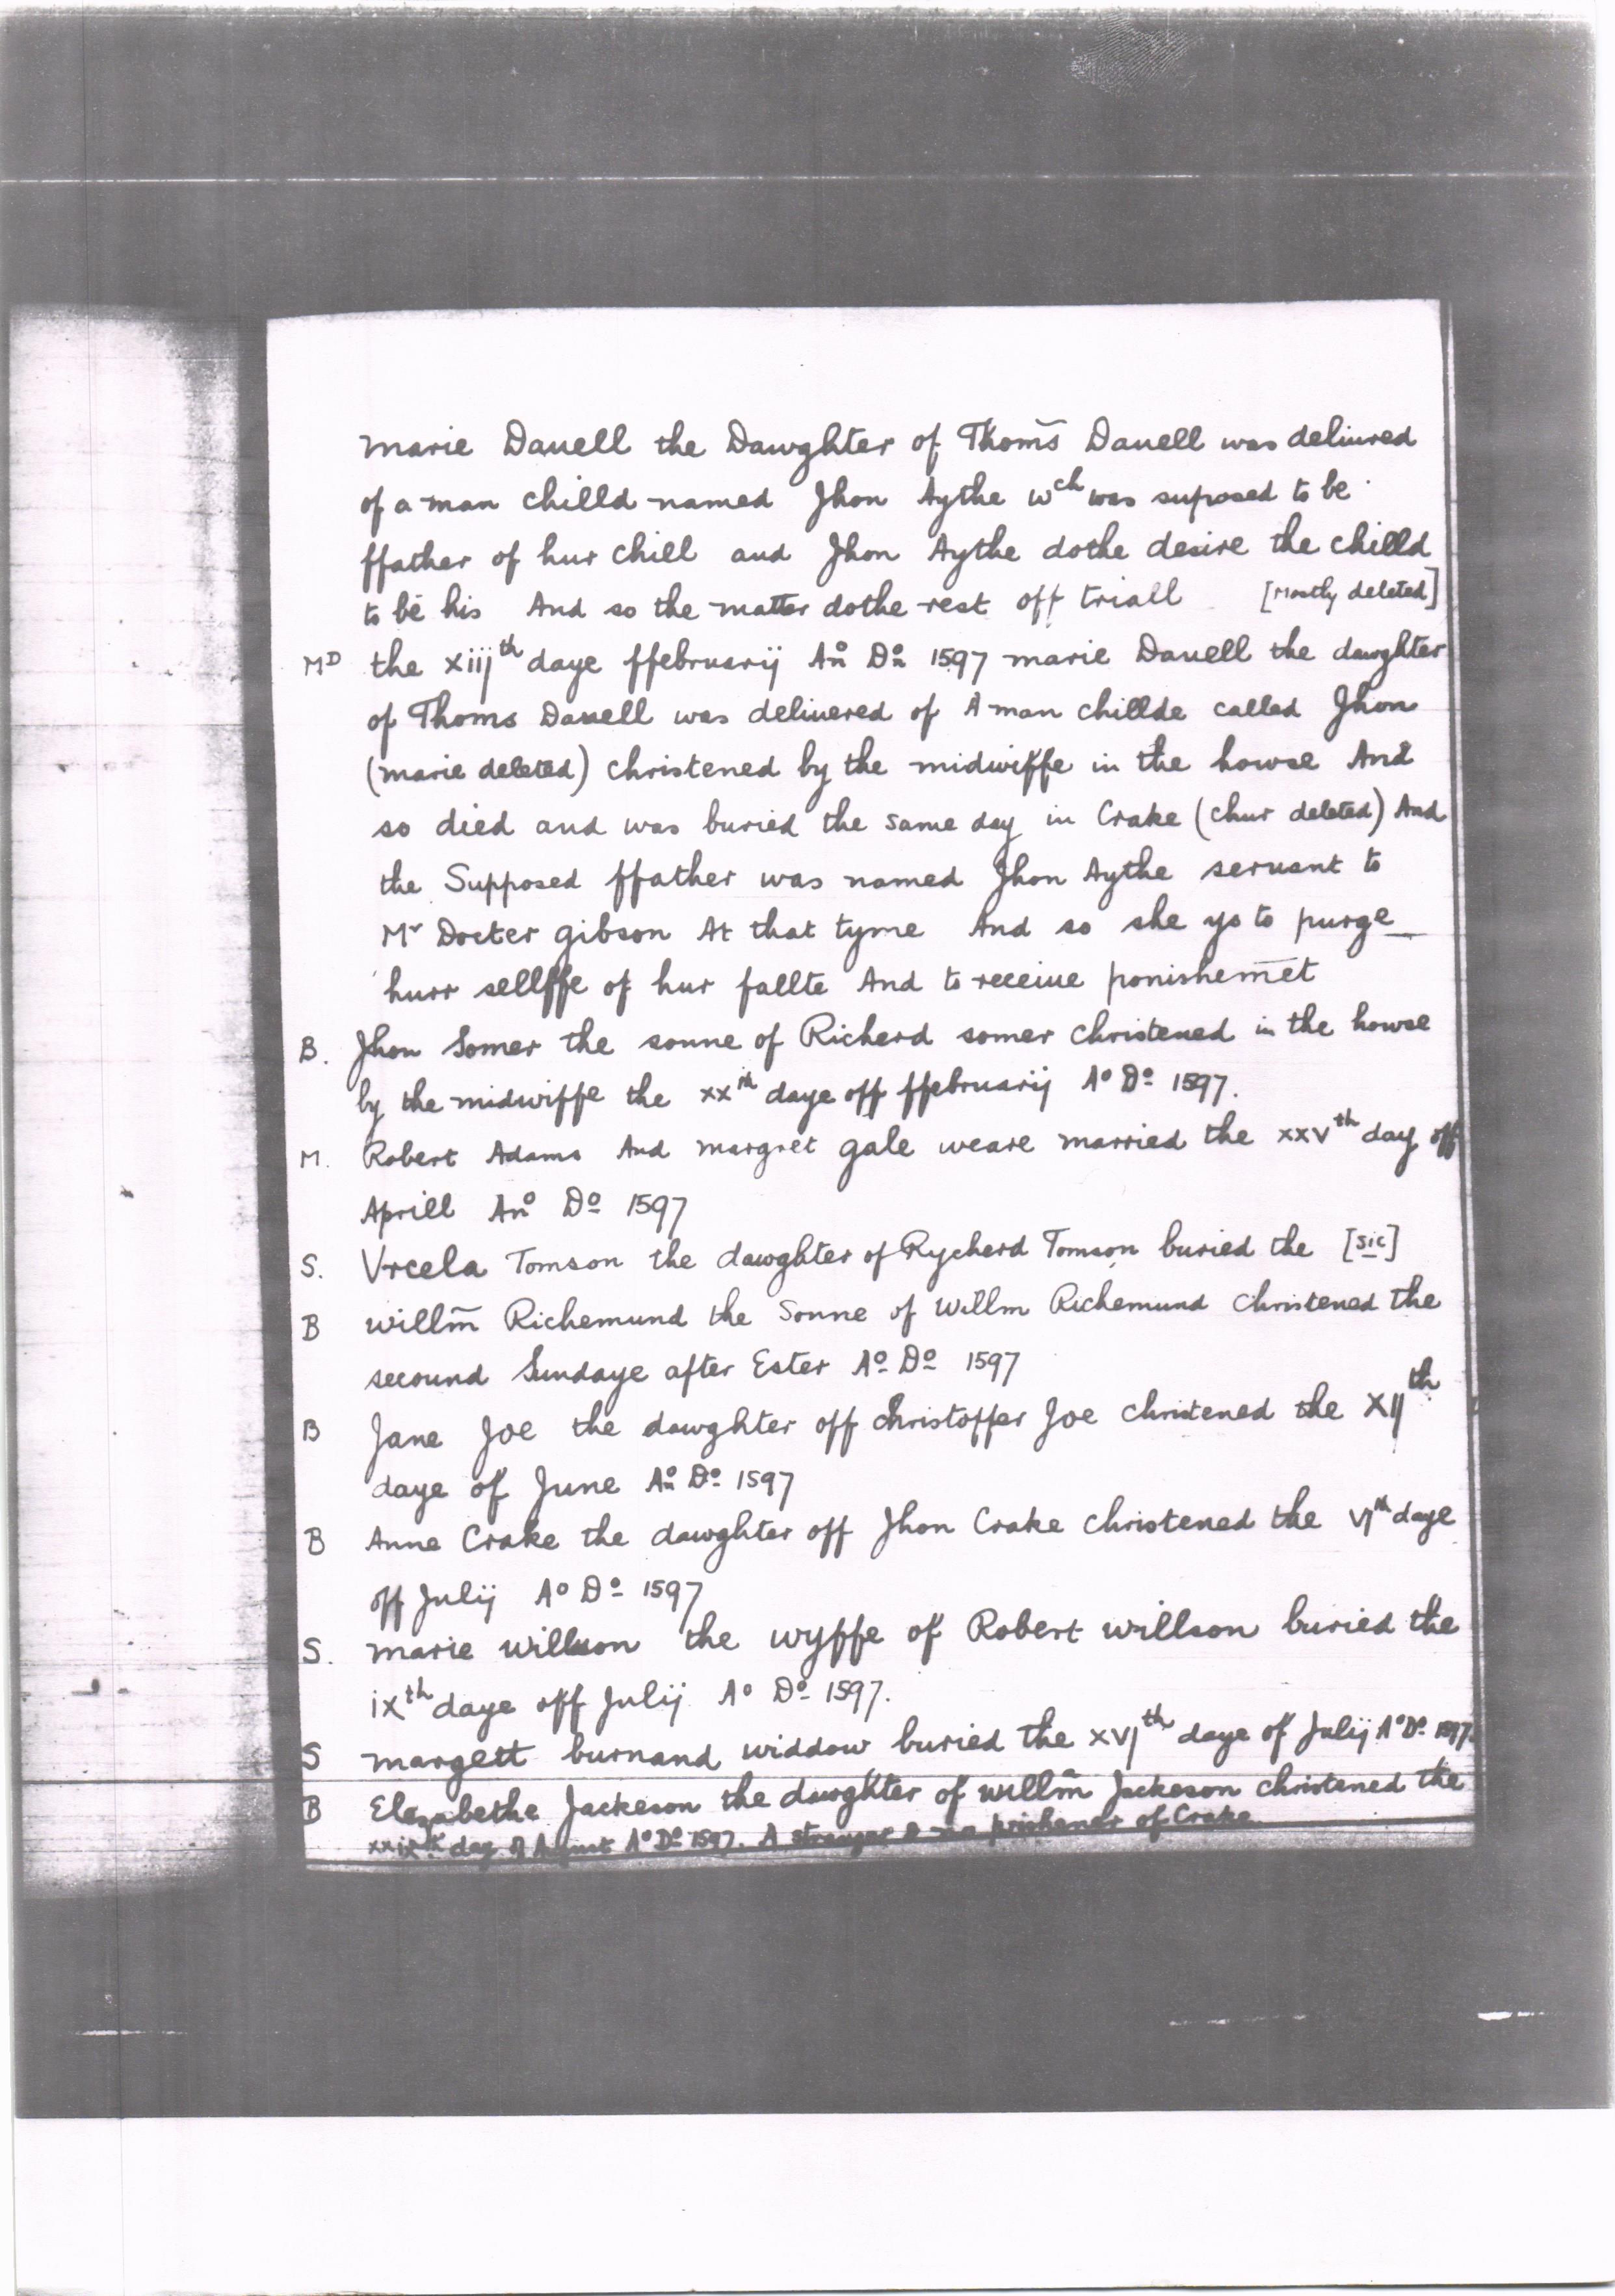 Marie Dauell the Dawghter of Thom̄s Dauell was deliured
of a man chilld named Jhon Aythe wch was suposed to be
ffather of hur chill and Jhon Aythe dothe desire the chilld
to be his And so the matter dothe rest off triall [Mostly deleted]
MD the xiijth daye ffebruarij Ano Do 1597 marie Dauell the dawghter
of Thoms Dauell was deliuered of A man chillde called Jhon
(marie deleted) christened by the midwiffe in the howse And
so died and was buried the same day in Crake (chur deleted) And
the Supposed ffather was named Jhon Aythe seruant to
Mr Docter gibson At that tyme And so she ys to purge
hurr sellffe of hur fallte And to receiue ponishem̄et
B. Jhon Somer the sonne of Richerd somer christened in the howse
by the midwiffe the xxth daye off ffebruarij Ao Do 1597.
M. Robert Adams And margret gale weare married the xxvth day off
Aprill Ano Do 1597
S. Vrcela Tomson the dawghter of Rycherd Tomson buried the [sic]
B willm̄ Richemund the Sonne of Willm Richemund christened the
secound Sundaye after Ester Ao Do 1597
B Jane Joe the dawghter off christoffer Joe christened the XIJth
daye of June Ano Do 1597
B Anne Crake the dawghter off Jhon Crake christened the VJth daye
off Julij Ao Do 1597
S. marie willson the wyffe of Robert willson buried the
ixth daye off Julij Ao Do 1597.
S margett burnand widdow buried the xvjth daye of Julij Ao Do 1597.
B Elezabethe Jackeson the dawghter of willm̄ Jackeson christened the
xxixth day of August Ao Do 1597. A stranger & no prishener of Crake